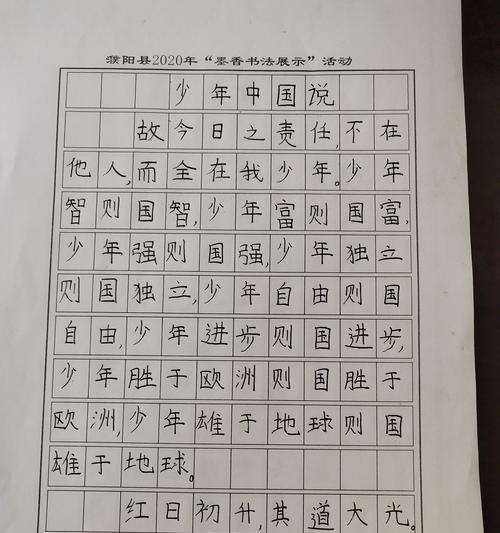 濮阳县2020年“墨香书法展示”活动
少年中国说
故今日之责任,不在
他人,而全在我少年。少年
智则国智,少年富则国富,
少年强则国强,少年独立
则国独立,少年自由则国
自由,少年进步则国进步,
少年胜于欧洲则国胜于
欧洲,少年雄于地球则国
雄于地球。
红日初升,其道大光。